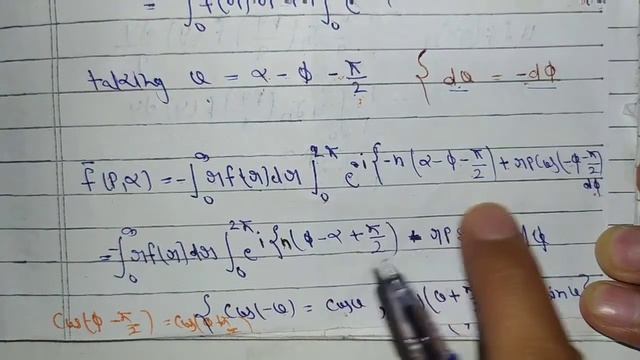 = ∫₀ f(r)r dr ∫₀ e
taking θ = α - ϕ - π/2 { dθ = -dϕ
f̄(ρ,α) = -∫₀^∞ rf(r)dr ∫₀^2π e^i{-n(α-ϕ-π/2)+rρcos(-ϕ-π/2) dϕ
= -∫₀^∞ rf(r)dr ∫₀^2π e^i{n(ϕ-α+π/2) - rρs dϕ
{ cos(-θ) = cosθ, (θ+ sinθ
cos(ϕ-π/2) = cos(ϕ+π/2)